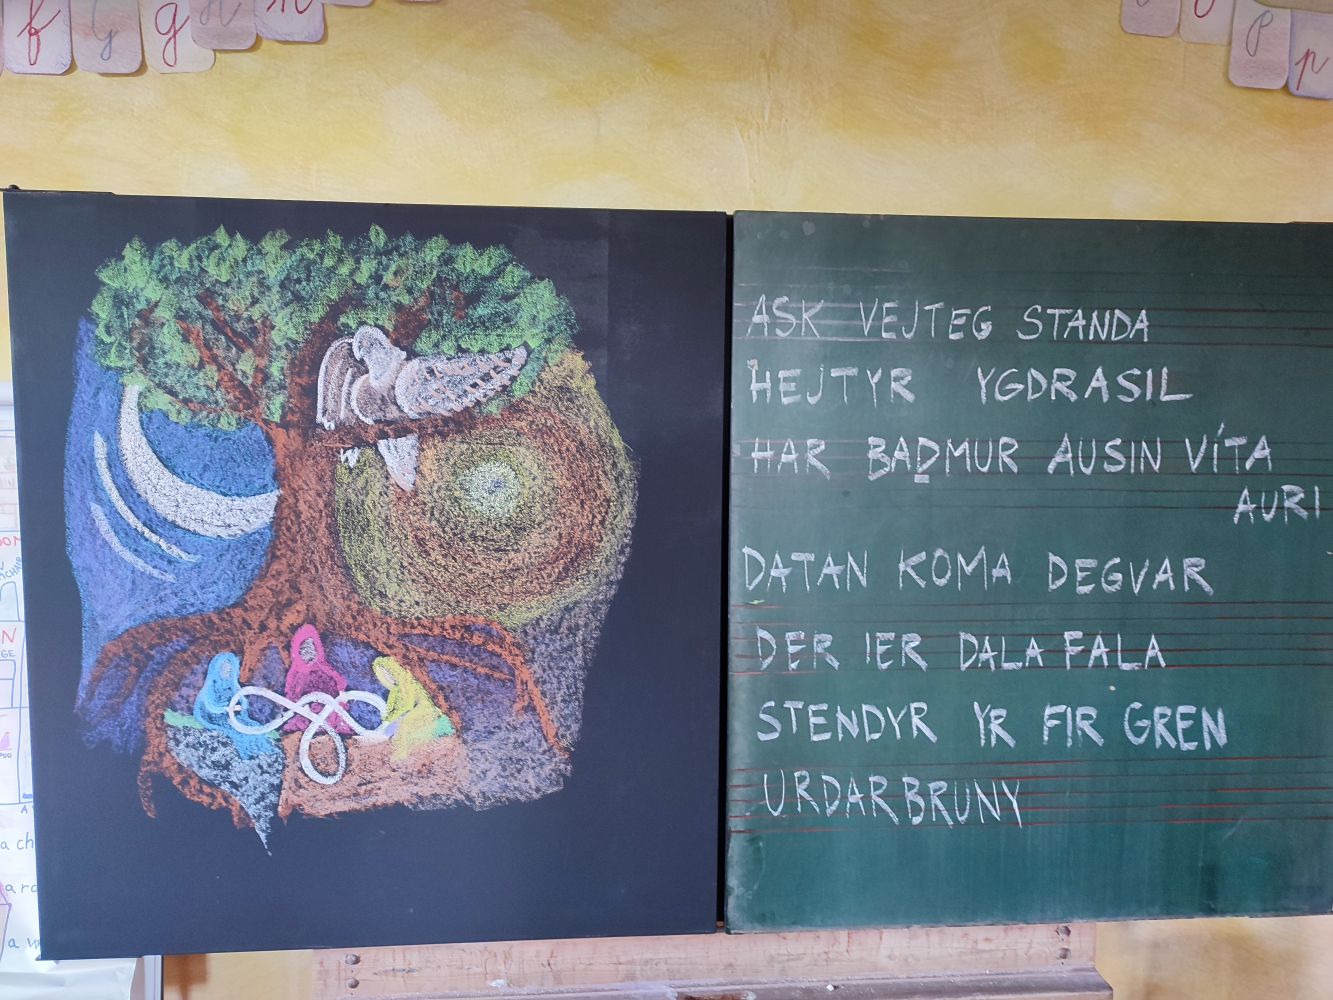 f G g H n
P p
ASK VEJTEG STANDA
HEJTYR YGDRASIL
HAR BAĐMUR AUSIN VÍTA
AURI
DATAN KOMA DEGVAR
DER IER DALA FALA
STENDYR YR FIR GREN
URDARBRUNY